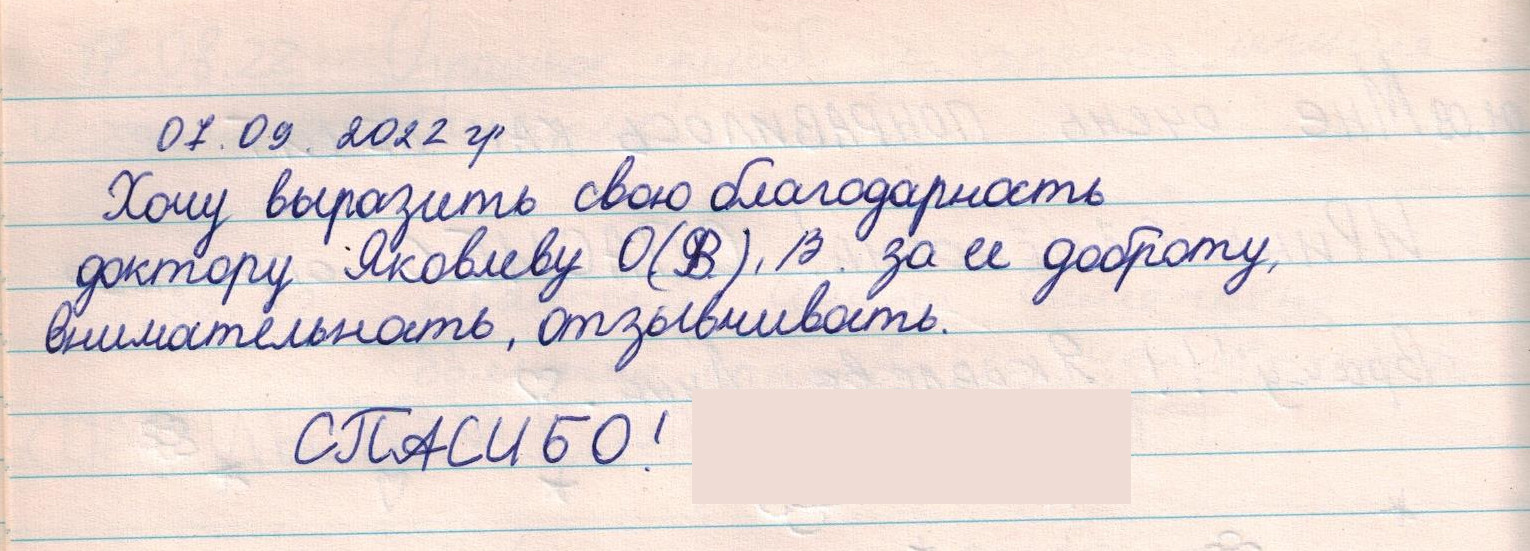 07.09.2022 г
Хочу выразить свою благодарность
доктору Яковлеву О(В).В. за ее доброту,
внимательность, отзывчивость.
СПАСИБО!